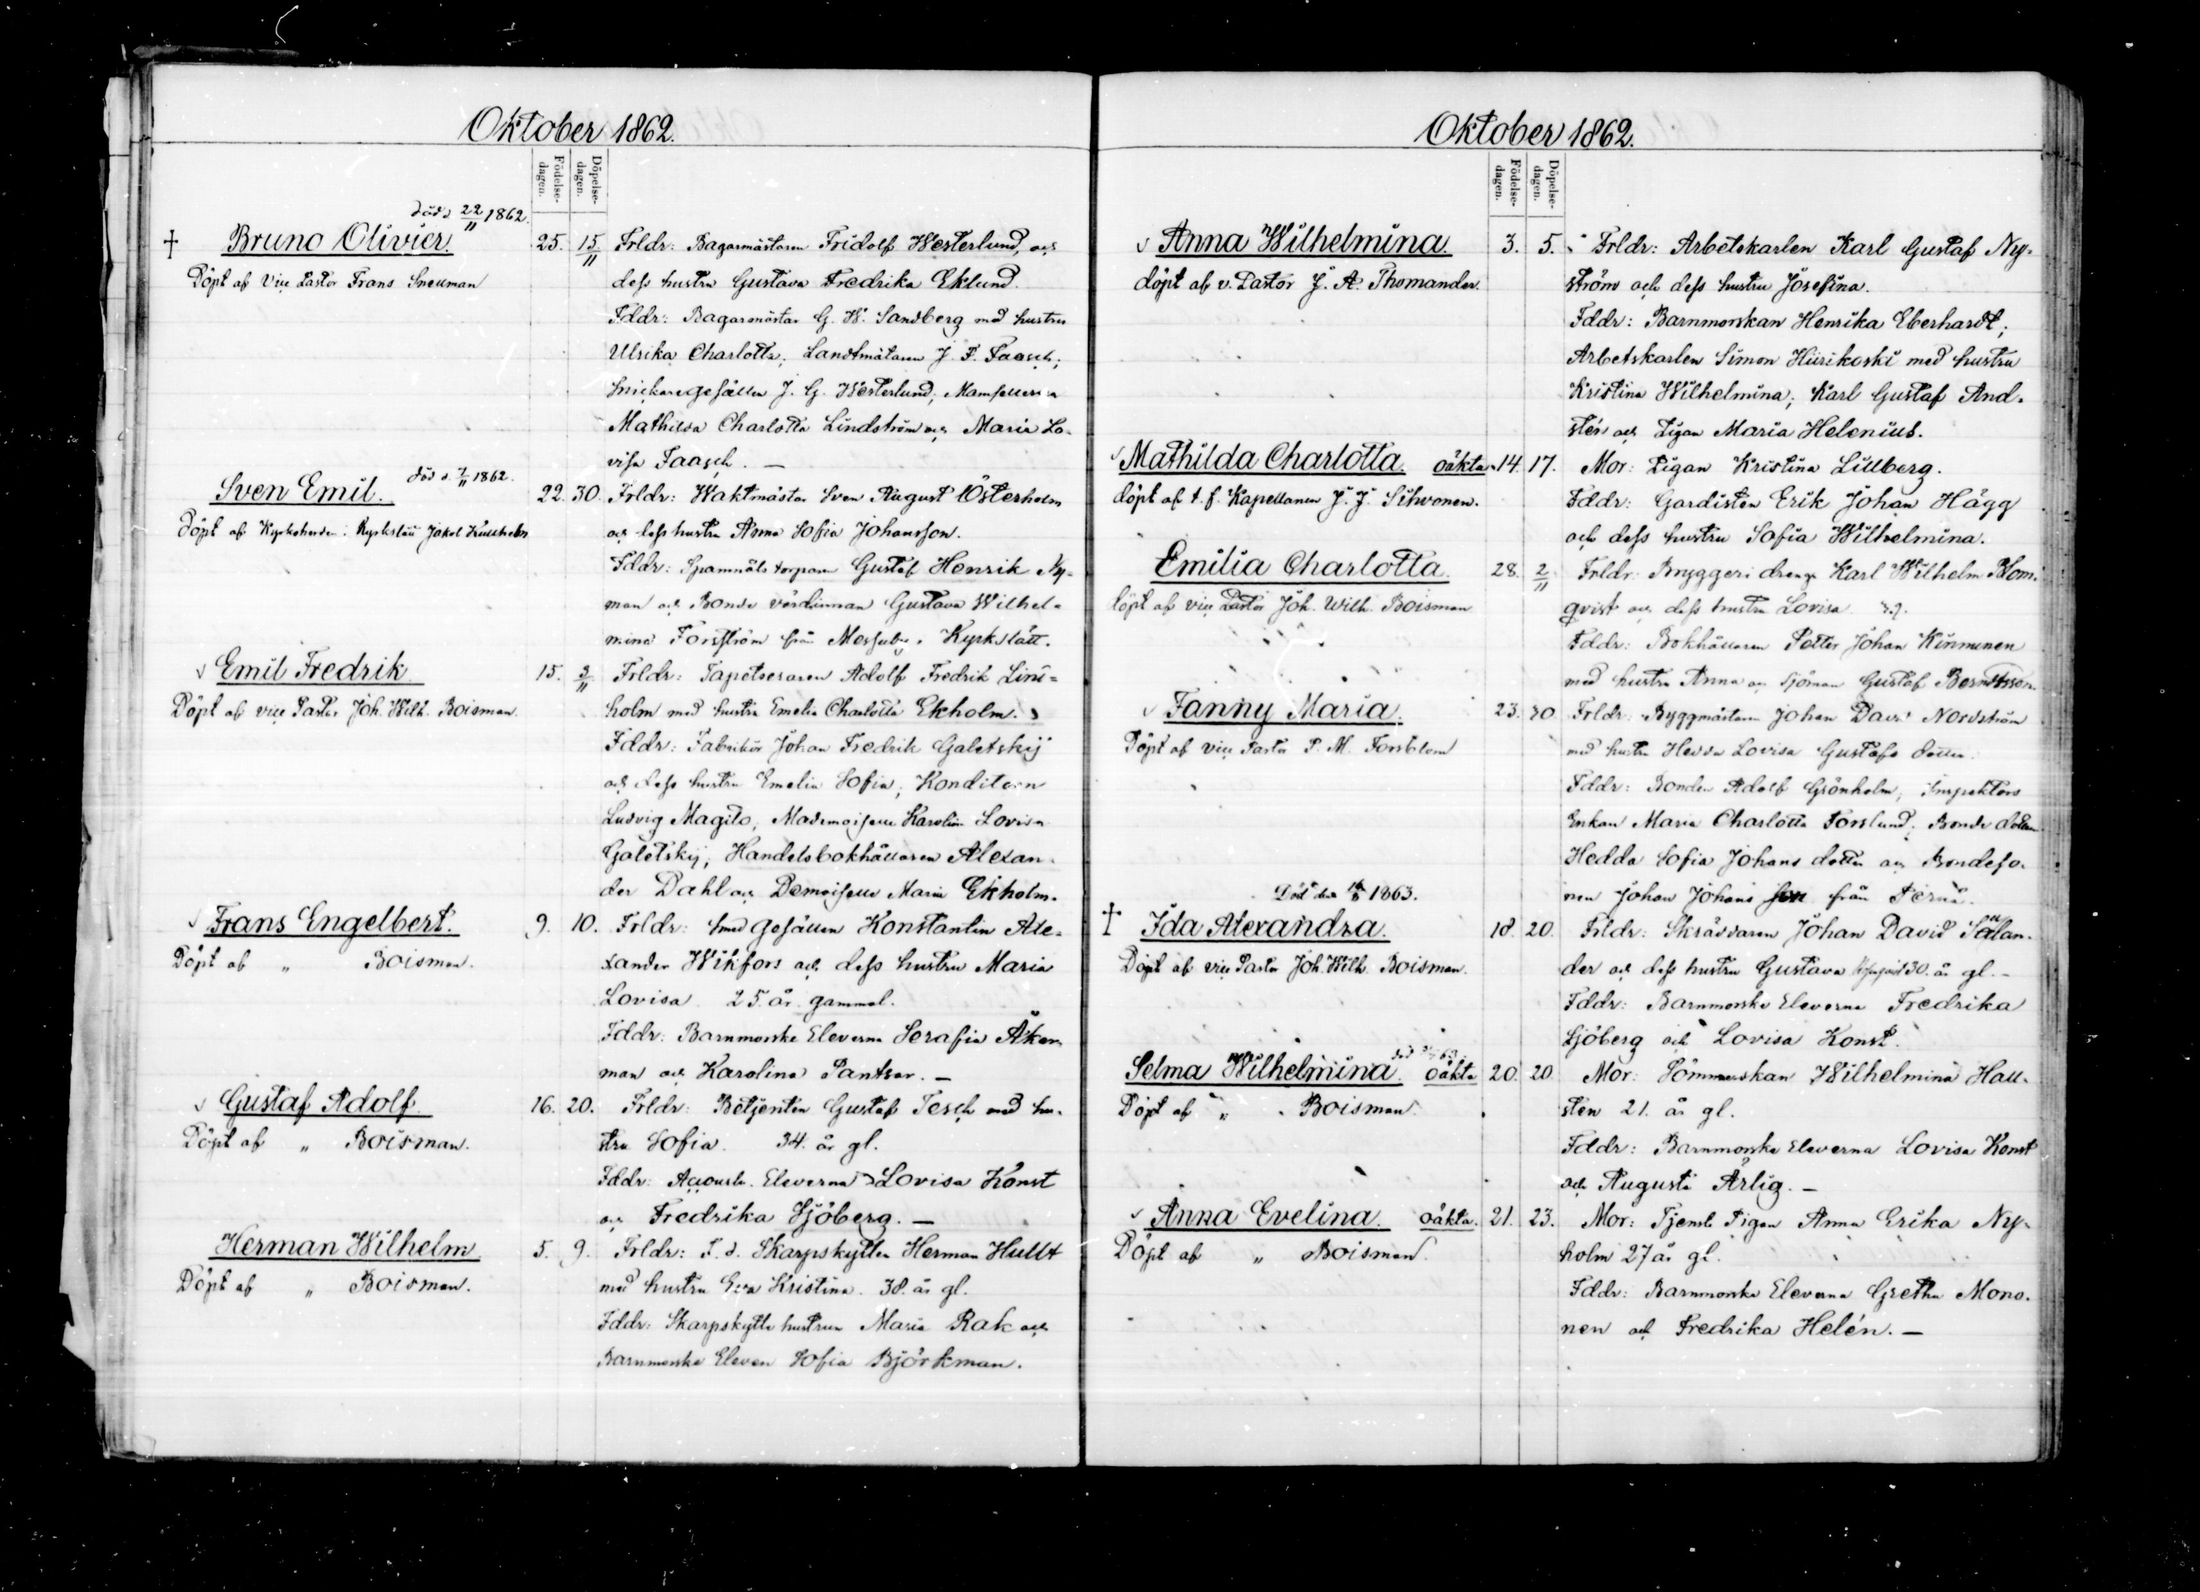 Oktober 1862.
Födelse-dagen.
Döpelse-dagen.
död d. 22/11 1862.
† Bruno Olivier.
Döpt af Vice Pastor Frans Sneuman
25. 15/11
Frldr: Bagarmästaren Fridolf Westerlund, och
dess hustru Gustava Fredrika Eklund.
Fddr: Bagarmästar G. W. Sandberg med hustru
Ulrika Charlotta, Landtmätaren J. F. Taasch;
Snickaregesällen J. G. Westerlund, Mamsellerna
Mathilda Charlotta Lindström och Maria Lo-
visa Taasch. —
Sven Emil.
död d. 7/11 1862.
Döpt af Kyrkoherden i Kyrkslätt Jakob
22. 30.
Frldr: Waktmästar Sven August Österholm
och dess hustru Anna Sofia Johansson.
Fddr: torparn Gustaf Henrik Ny-
man och Bonde värdinnan Gustava Wilhel-
mina Forsström från Kyrkslätt.
Emil Fredrik
Döpt af vice Pastor Joh. Wilh. Boisman.
15. 3/11
Frldr: Tapetseraren Adolf Fredrik Lind-
holm med hustru Emelia Charlotta Ekholm.
Fddr: Fabrikör Johan Fredrik Galetskij
och dess hustru Emelia Sofia, Konditorn
Ludvig Magito, Mademoiselle Karolina Lovisa
Galetskij, Handelsbokhållaren Alexan-
der Dahl och Demoiselle Maria Ekholm.
Frans Engelbert.
Döpt af " Boisman.
9. 10.
Frldr: Smedgesällen Konstantin Ale-
xander Wikfors och dess hustru Maria
Lovisa 25 år gammal.
Fddr: Barnmorske Eleverna Serafia Åker
man och Karolina Pantsar. —
Gustaf Adolf
Döpt af " Boisman.
16. 20.
Frldr: Betjenten Gustaf Tesch med hu-
stru Sofia. 34. år gl.
Fddr: Eleverna Lovisa Konst
och Fredrika Sjöberg. —
Herman Wilhelm
Döpt af " Boisman.
5. 9.
Frldr: F. d. Skarpskytten Herman Hullt
med hustru Eva Kristina. 38. år gl.
Fddr: Skarpskytte hustrun Maria Rak och
Barnmorske Eleven Sofia Björkman.
Oktober 1862.
Födelse-dagen.
Döpelse-dagen.
Anna Wilhelmina.
döpt af v. Pastor J. A. Thomander.
3. 5.
Frldr: Arbetskarlen Karl Gustaf Ny-
ström och dess hustru Josefina.
Fddr: Barnmorskan Henrika Eberhardt;
Arbetskarlen Simon Hiirikoski med hustru
Kristina Wilhelmina; Karl Gustaf And-
stén och Pigan Maria Helenius.
Mathilda Charlotta. oäkta
döpt af t. f. Kapellanen J. J. Sihvonen.
14. 17.
Mor: Pigan Kristina Lillberg.
Fddr: Gardisten Erik Johan Hägg
och dess hustru Sofia Wilhelmina.
Emilia Charlotta
döpt af vice Pastor Joh. Wilh. Boisman
28. 2/11
Frldr: Bryggeri drenge Karl Wilhelm Blom-
qvist och dess hustru Lovisa
Fddr: Bokhållaren Petter Johan Kinnunen
med hustru Anna och Sjöman Gustaf Berndtsson.
Fanny Maria.
Döpt af vice Pastor P. M. Forsblom
23. 30
Frldr: Byggmästaren Johan David Nordström
med hustru Hedda Lovisa Gustafs dotter.
Fddr: Bonden Adolf Grönholm, Inspektors
Enkan Maria Charlotta Forslund, Bonde dottern
Hedda Sofia Johans dotter och Bondeso-
nen Johan Johans son från Pernå.
Död den 1863.
† Ida Alexandra.
Döpt af vice Pastor Joh. Wilh. Boisman.
18. 20.
Frldr: Skräddaren Johan David Sälan-
der och dess hustru Gustava 30. år gl. —
Fddr: Barnmorske Eleverna Fredrika
Sjöberg och Lovisa Konst.
Selma Wilhelmina. oäkta
Döpt af " Boisman
20. 20
Mor: Sömmerskan Wilhelmina Hall-
sten 21. år gl.
Fddr: Barnmorske Eleverna Lovisa Konst
och Augusta Ärlig. —
Anna Evelina. oäkta.
Döpt af " Boisman.
21. 23.
Mor: Tjenste Pigan Anna Erika Ny-
holm 27 år gl.
Fddr: Barnmorske Eleverna Gretha Mono-
nen och Fredrika Helén. —